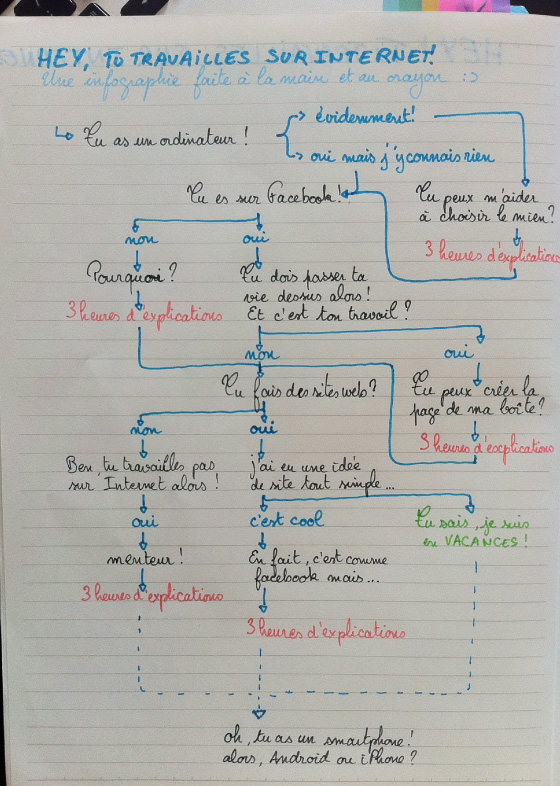 HEY, TU TRAVAILLES SUR INTERNET!
Une infographie faite à la main et au crayon :>
évidemment!
Tu as un ordinateur !
oui mais j'y connais rien
Tu es sur Facebook!
Tu peux m'aider
à choisir le mien?
non
oui
3 heures d'explications
Pourquoi ?
Tu dois passer ta
vie dessus alors !
3 heures d'explications
Et c'est ton travail ?
non
oui
Tu fais des sites web?
Tu peux créer la
page de ma boîte?
non
oui
3 heures d'excplications
Ben, tu travailles pas
sur Internet alors !
j'ai eu une idée
de site tout simple...
oui
c'est cool
Tu sais, je suis
en VACANCES !
menteur !
En fait, c'est comme
facebook mais...
3 heures d'explications
3 heures d'explications
oh, tu as un smartphone!
alors, Android ou iPhone ?